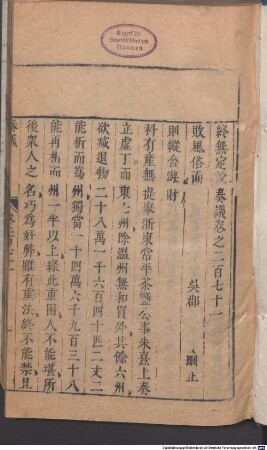 Bayerische
Staatsbibliothek
München
終無定說奏議卷之二百七十一
敗風俗而 吳郡 刪正
則縱舍餘財
科有產無提舉浙東常平茶鹽公事朱熹上奏
立虛丁而東七州除溫州無和買外其餘六州
欲減退物二十八萬一千六百四十四匹二丈二
能析而為州獨當一十四萬六千九百三十八
能再析而州一半以上緣此重困人不能堪所
後衆人之名巧為奸弊雖有重法終不能禁且
奏議